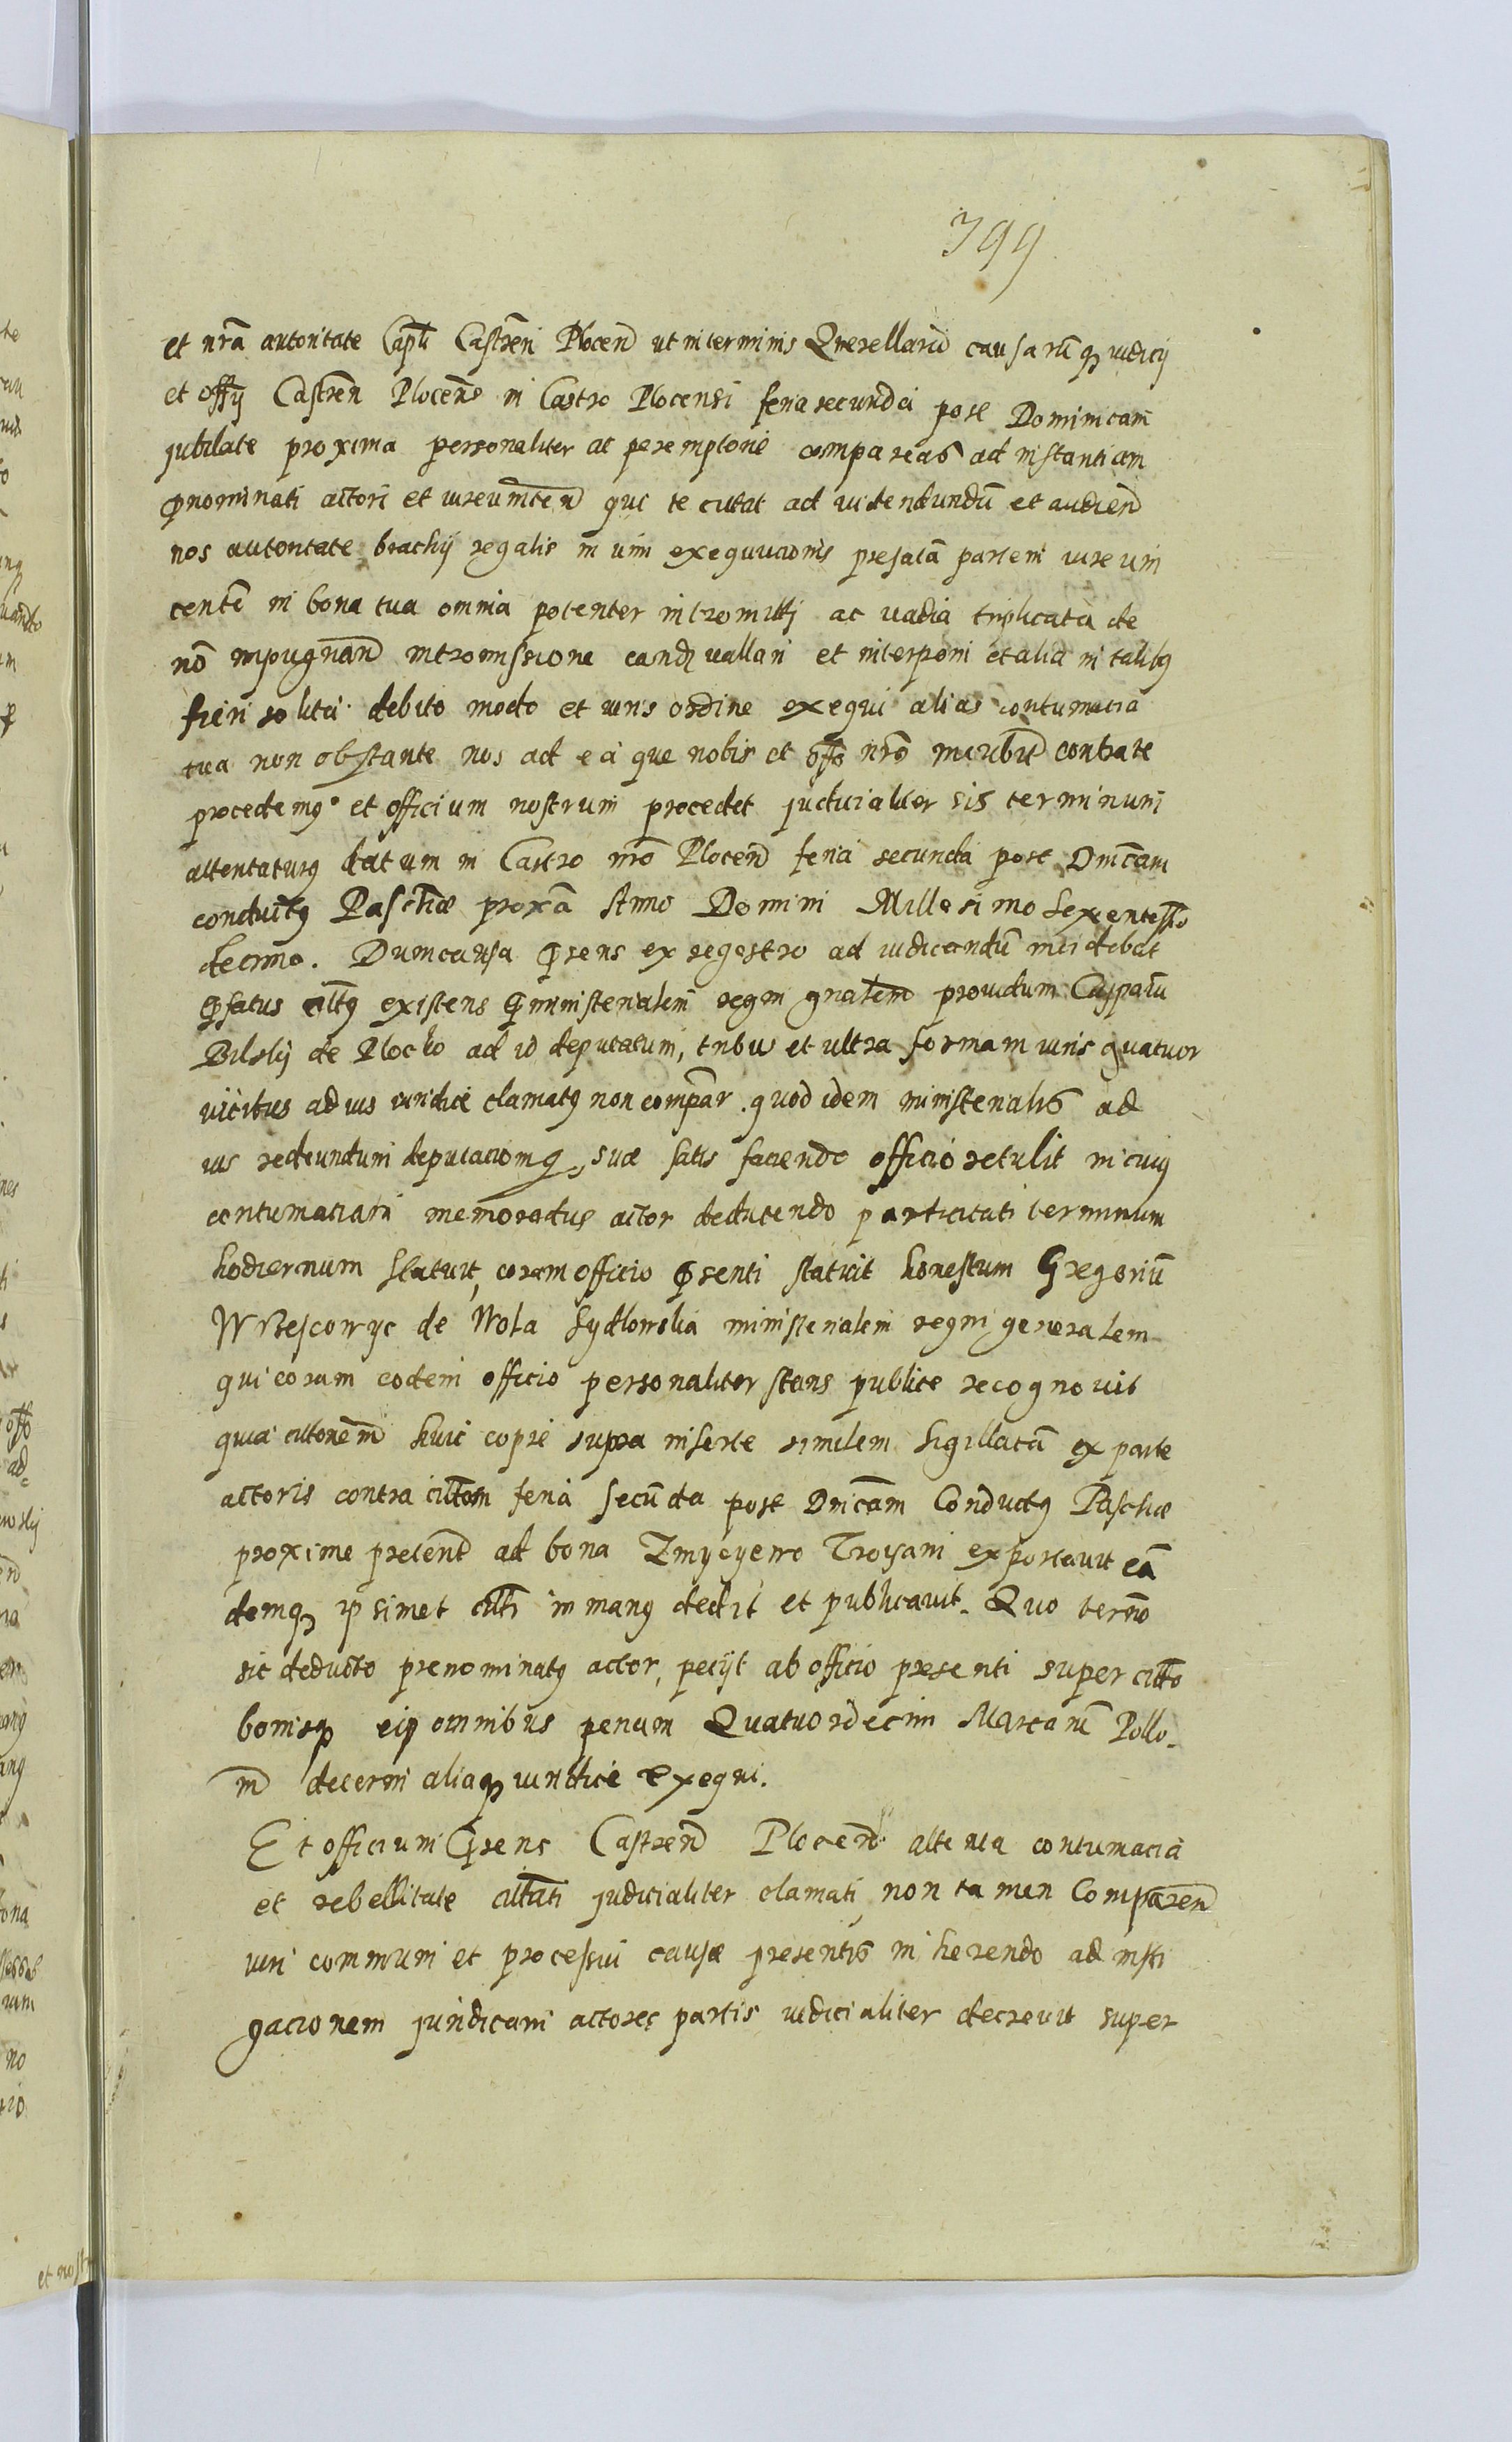 799
et nrã autoritate Capli Castren Plocen ut in terminis Querellarũ causarũq iudicij
et offij Castren Plocens in Castro Plocensi feria secunda post Dominicam
jubilate proxima personaliter ac peremptorie compareas ad instantiam
pnominati actori et iurevincen qui te citat ad videndundũ et audien
nos autoritate brachij regalis in vim exequucionis prefatã partem iure vin
centẽ in bona tua omnia potenter intromitti ac vadia triplicata de
nõ impugnan intromissione eandẽ vallari et interponi et alia in talibq
fieri solita debito modo et iuris ordine exequi alias contumacia
tua non obstante nos ad ea que nobis et offo nrõ incubũt contra te
procedemq et officium nostrum procedet judicialiter sis terminum
attentaturq datum in Castro nrõ Plocen feria secunda post Dnicam
conductq Paschæ proxã Anno Domini Millesimo Sexcentesimo
decimo. Dum causa prens ex regestro ad iudicandũ incidebat
pfatus cittq existens p ministerialem regni gnalem providum Casparũ
Bilsky de Plocko ad id deputatum, tribus et ultra formam iuris quatuor
vicibus ad ius iuridice clamatq non compar. quod idem ministerialis ad
ius redeundum deputacionq suæ satis faciendo officio retulit in cuiq
contumaciam memoratus actor deducendo parti citati terminum
hodiernum statuit, coram officio prsenti statuit honestum Gregoriũ
Wrzescowyc de Wola Sydlowska ministerialem regni generalem
qui coram eodem officio personaliter stans publice recognovit
quia citionem huic copie supra inserte similem sigillatã ex parte
actoris contra cittom feria secũda post Dnicam Conductq Paschæ
proxime preterit ad bona Zmyeyewo Troyani exportavit eã
demq ipsimet citti in manq dedit et publicavit. Quo termo
sic deducto prenominatq actor, pecijt ab officio presenti super citto
bonisq eiq omnibus penam Quatuordecim Marcarũ Pollo-
m decerni aliaq iuridice exequi.
Et officium prens Castren Plocen attenta contumacia
et rebellitate cittati judicialiter clamati non tamen Comparen
iuri communi et processui causæ presentis inherendo ad insti
gacionem juridicam actores partis iudicialiter decrevit super